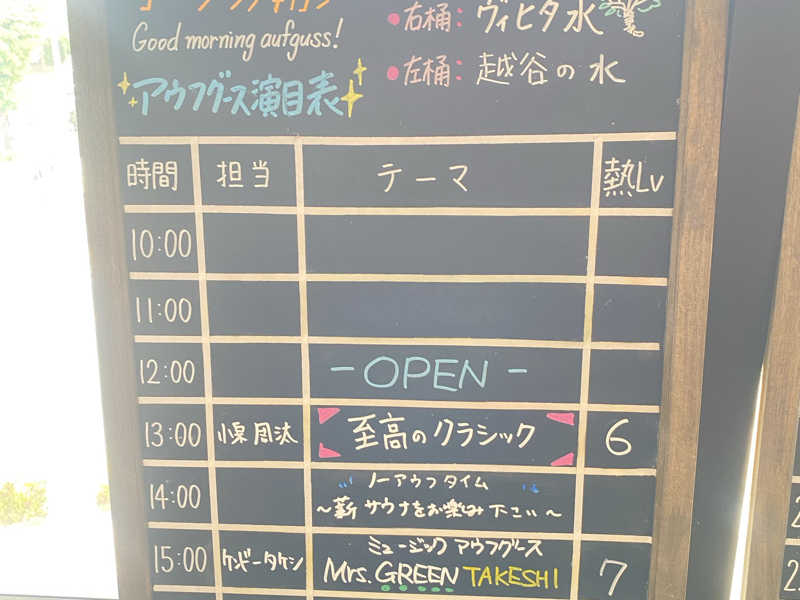 Good morning aufguss!
アウフグース演目表
●右桶: ヴィヒタ水
●左桶: 越谷の水
時間 担当 テーマ 熱Lv
10:00
11:00
12:00 -OPEN-
13:00 小栗周汰 至高のクラシック 6
14:00 ノーアウフタイム
~薪サウナをお楽み下さい~
15:00 ケンビータケシ ミュージックアウフグース
Mrs. GREEN TAKESHI 7